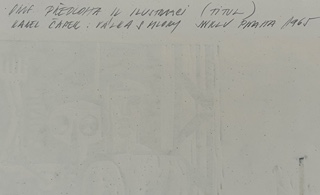 PŘEDLOHA K ILUSTRACI (TITUL)
KAREL ČAPEK: VÁLKA S MLOKY 1965